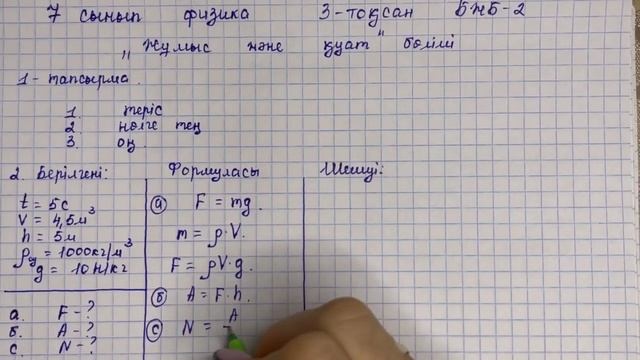 7 сынып физика 3-тоқсан БЖБ-2
"Жұмыс және қуат" бөлімі
1-тапсырма.
1. теріс
2. нөлге тең
3. оң.
2. Берілгені:
t = 5с
V = 4,5м³
h = 5м
ρ = 1000кг/м³
g = 10Н/кг
а. F-?
б. A-?
с. N-?
Формуласы
а F = mg.
m = ρ·V.
F = ρV·g.
б A = F·h.
с N = A
Шешуі: